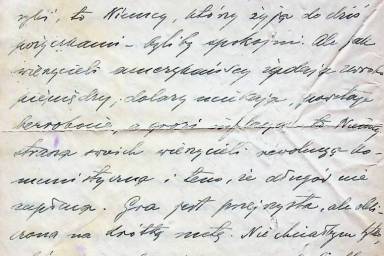 ryli, to Niemcy, którzy żyją do dziś
pożyczkami – byliby spokojni. Ale jak
wierzyciele amerykańscy
pieniędzy, dolary znikają, powstaje
bezrobocie, a grozi inflacja – to Niemcy
straszą swoich wierzycieli rewolucją ko-
munistyczną i tem, że długów nie
zapłacą. Gra jest przejrzysta, ale obli-
czona na krótką metę. Nie chciałbym tylko,